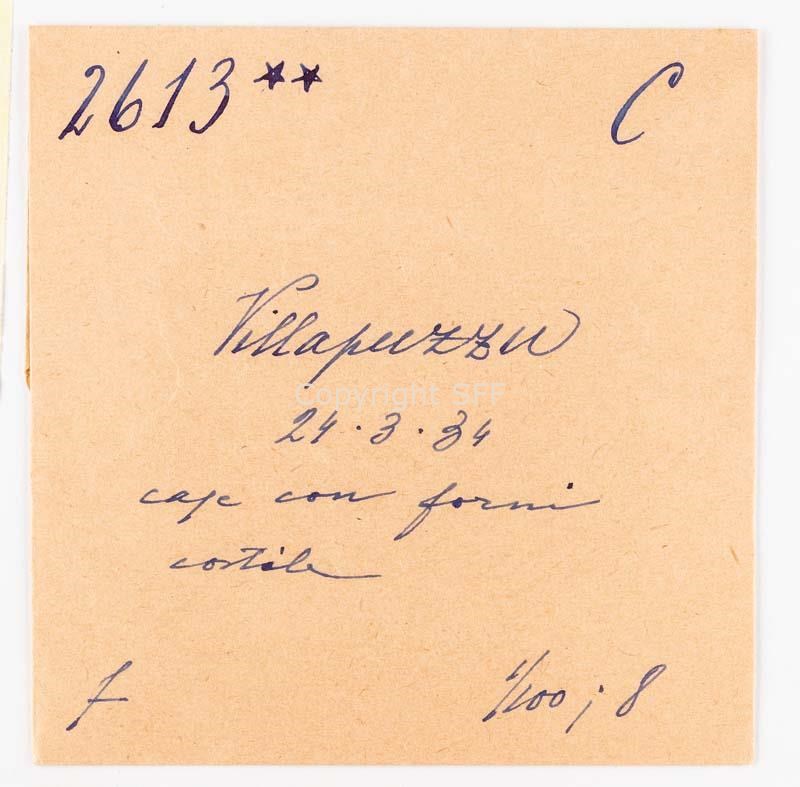 2613** C
Villapuzzu
Copyright SFF
24.3.34
case con forni
cortile
f 1/100; 8